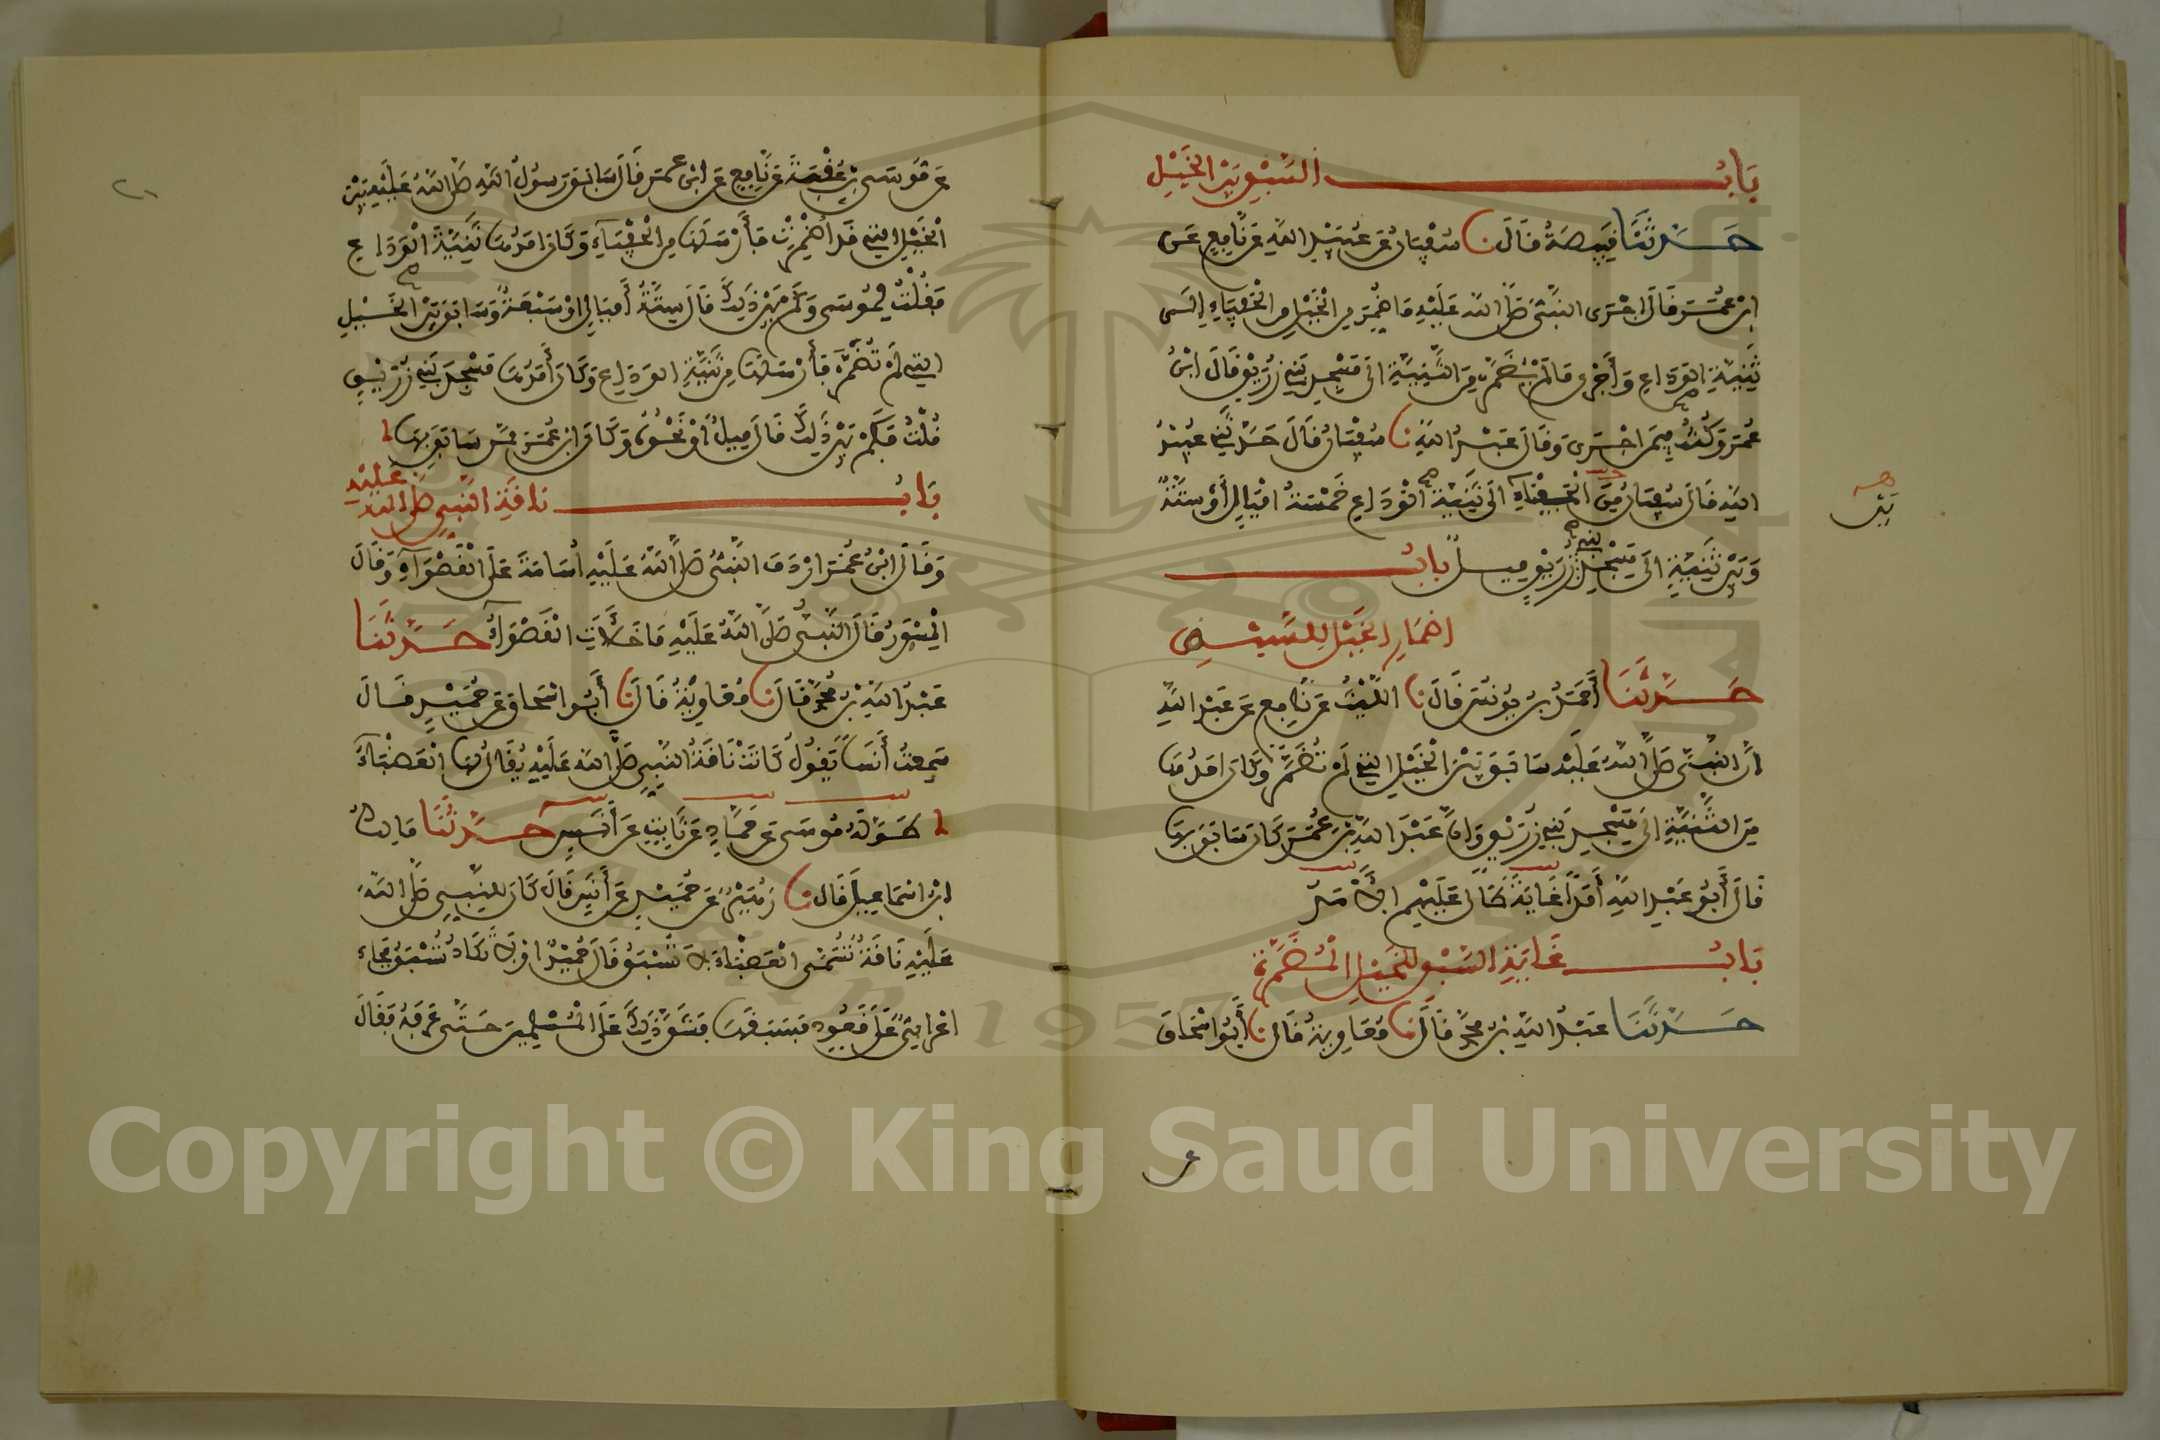 باب السبق بين الخيل
حدثنا قبيصة قال نا سفيان عن عبيد الله عن نافع عن
ابن عمر قال اجرى النبي صلى الله عليه ما ضمر من الخيل من الحفياء الى
ثنية الوداع وأجرى ما لم يضمر من الثنية الى مسجد بني زريق قال ابن
عمر وكنت فيمن اجرى وقال عبد الله نا سفيان قال حدثني عبيد
الله قال سفيان من الحفياء الى ثنية الوداع خمسة اميال أو ستة
بين
وبين ثنية الى مسجد بني زريق ميل باب
اضمار الخيل للسبق
حدثنا أحمد بن يونس قال نا الليث عن نافع عن عبد الله
ان النبي صلى الله عليه سابق بين الخيل التي لم تضمر وكان امدها
من الثنية الى مسجد بني زريق وان عبد الله بن عمر كان سابق بها
قال أبو عبد الله أمدا غاية طال عليهم الأمد
باب غاية السبق للخيل المضمرة
حدثنا عبد الله بن محمد قال نا معاوية قال نا أبو اسحاق
عن موسى بن عقبة عن نافع عن ابن عمر قال سابق رسول الله صلى الله عليه بين
الخيل التي قد اضمرت فأرسلها من الحفياء وكان امدها ثنية الوداع
فقلت لموسى وكم بين ذلك قال ستة أميال او سبعة وسابق بين الخيل
التي لم تضمر فأرسلها من ثنية الوداع وكان أمدها مسجد بني زريق
قلت فكم بين ذلك قال ميل او نحوه وكان ابن عمر ممن سابق بها
باب ناقة النبي صلى الله عليه
وقال ابن عمر اردف النبي صلى الله عليه أسامة على القصواء وقال
المسور قال النبي صلى الله عليه ما خلأت القصواء حدثنا
عبد الله بن محمد قال نا معاوية قال نا أبو اسحاق عن حميد قال
سمعت أنسا يقول كانت ناقة النبي صلى الله عليه يقال لها العضباء
طوله موسى عن حماد عن ثابت عن أنس حدثنا مالك
ابن اسماعيل قال نا زهير عن حميد عن أنس قال كان للنبي صلى الله
عليه ناقة تسمى العضباء لا تسبق قال حميد او لا تكاد تسبق فجاء
اعرابي على قعود فسبقها فشق ذلك على المسلمين حتى عرفه فقال
Copyright © King Saud University
1957